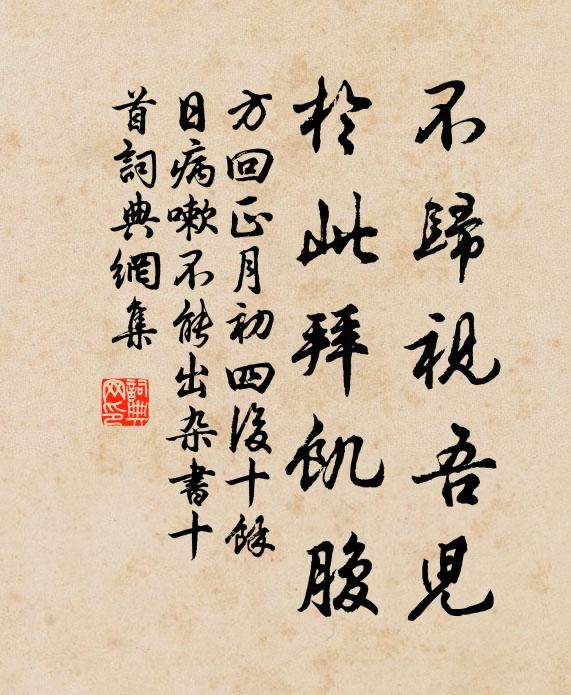 不歸視吾兒
於此拜飢腹
方回正月初四後十餘
日病嗽不能出杂書十
首詞典網集
詞典网印